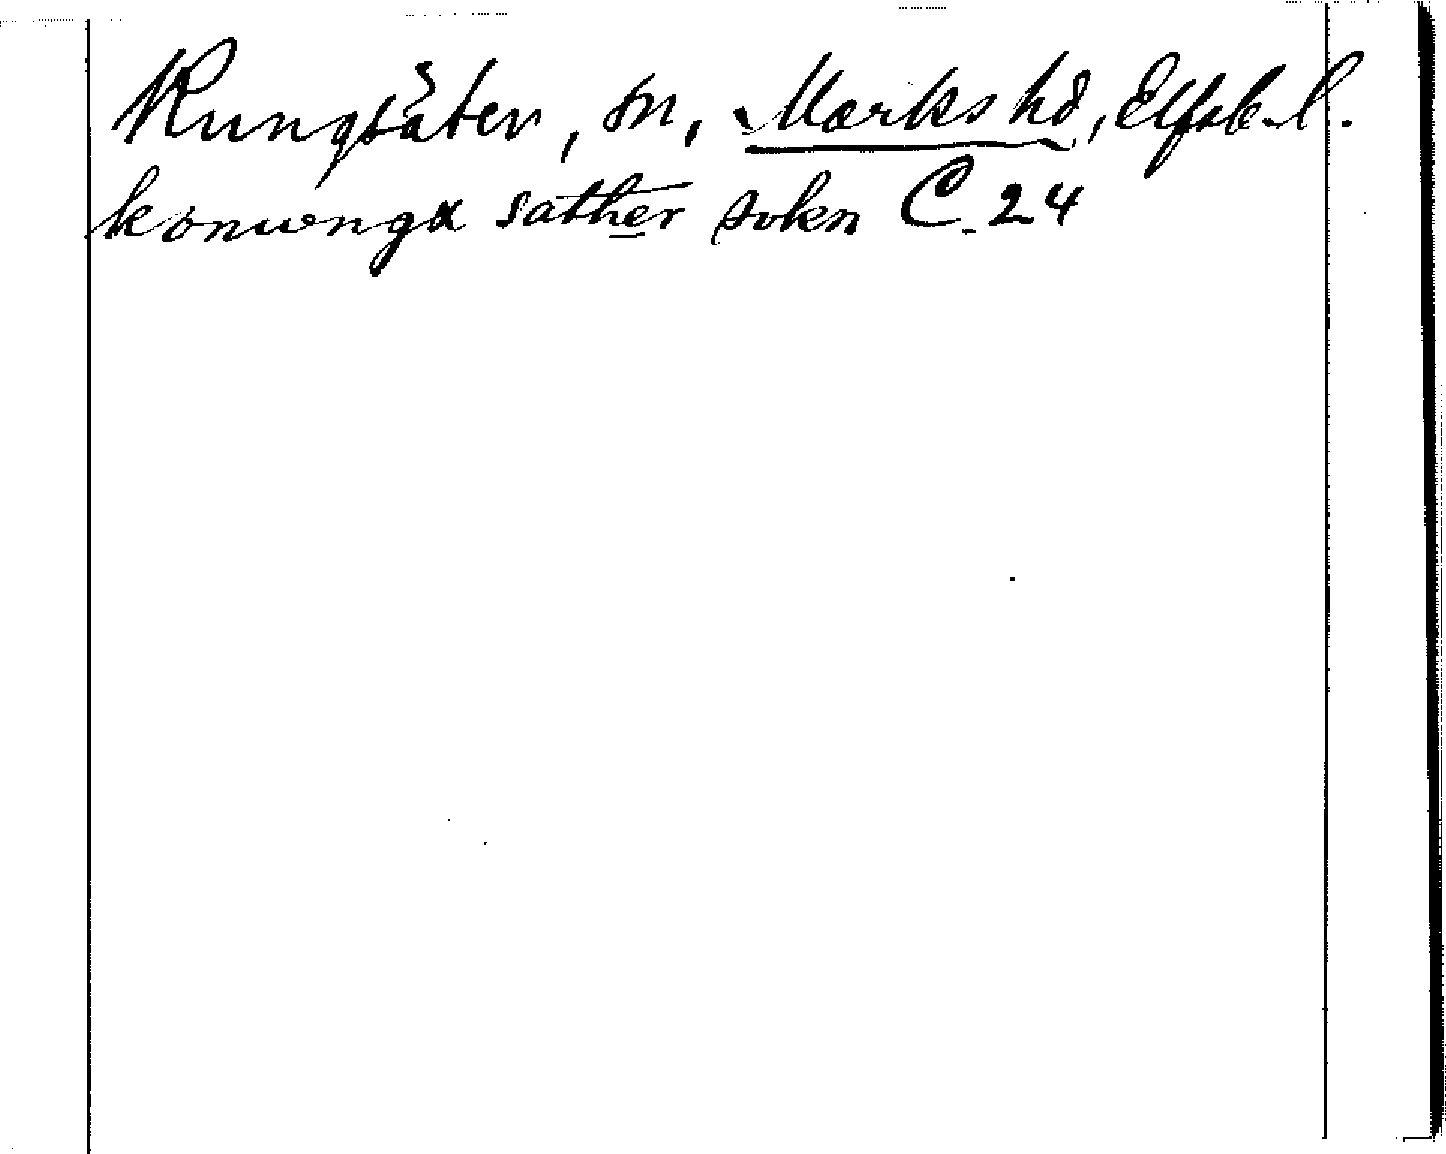 Kungsäter, sn, Marks hd, Elfsb. l.
konungx sather sokn C. 24